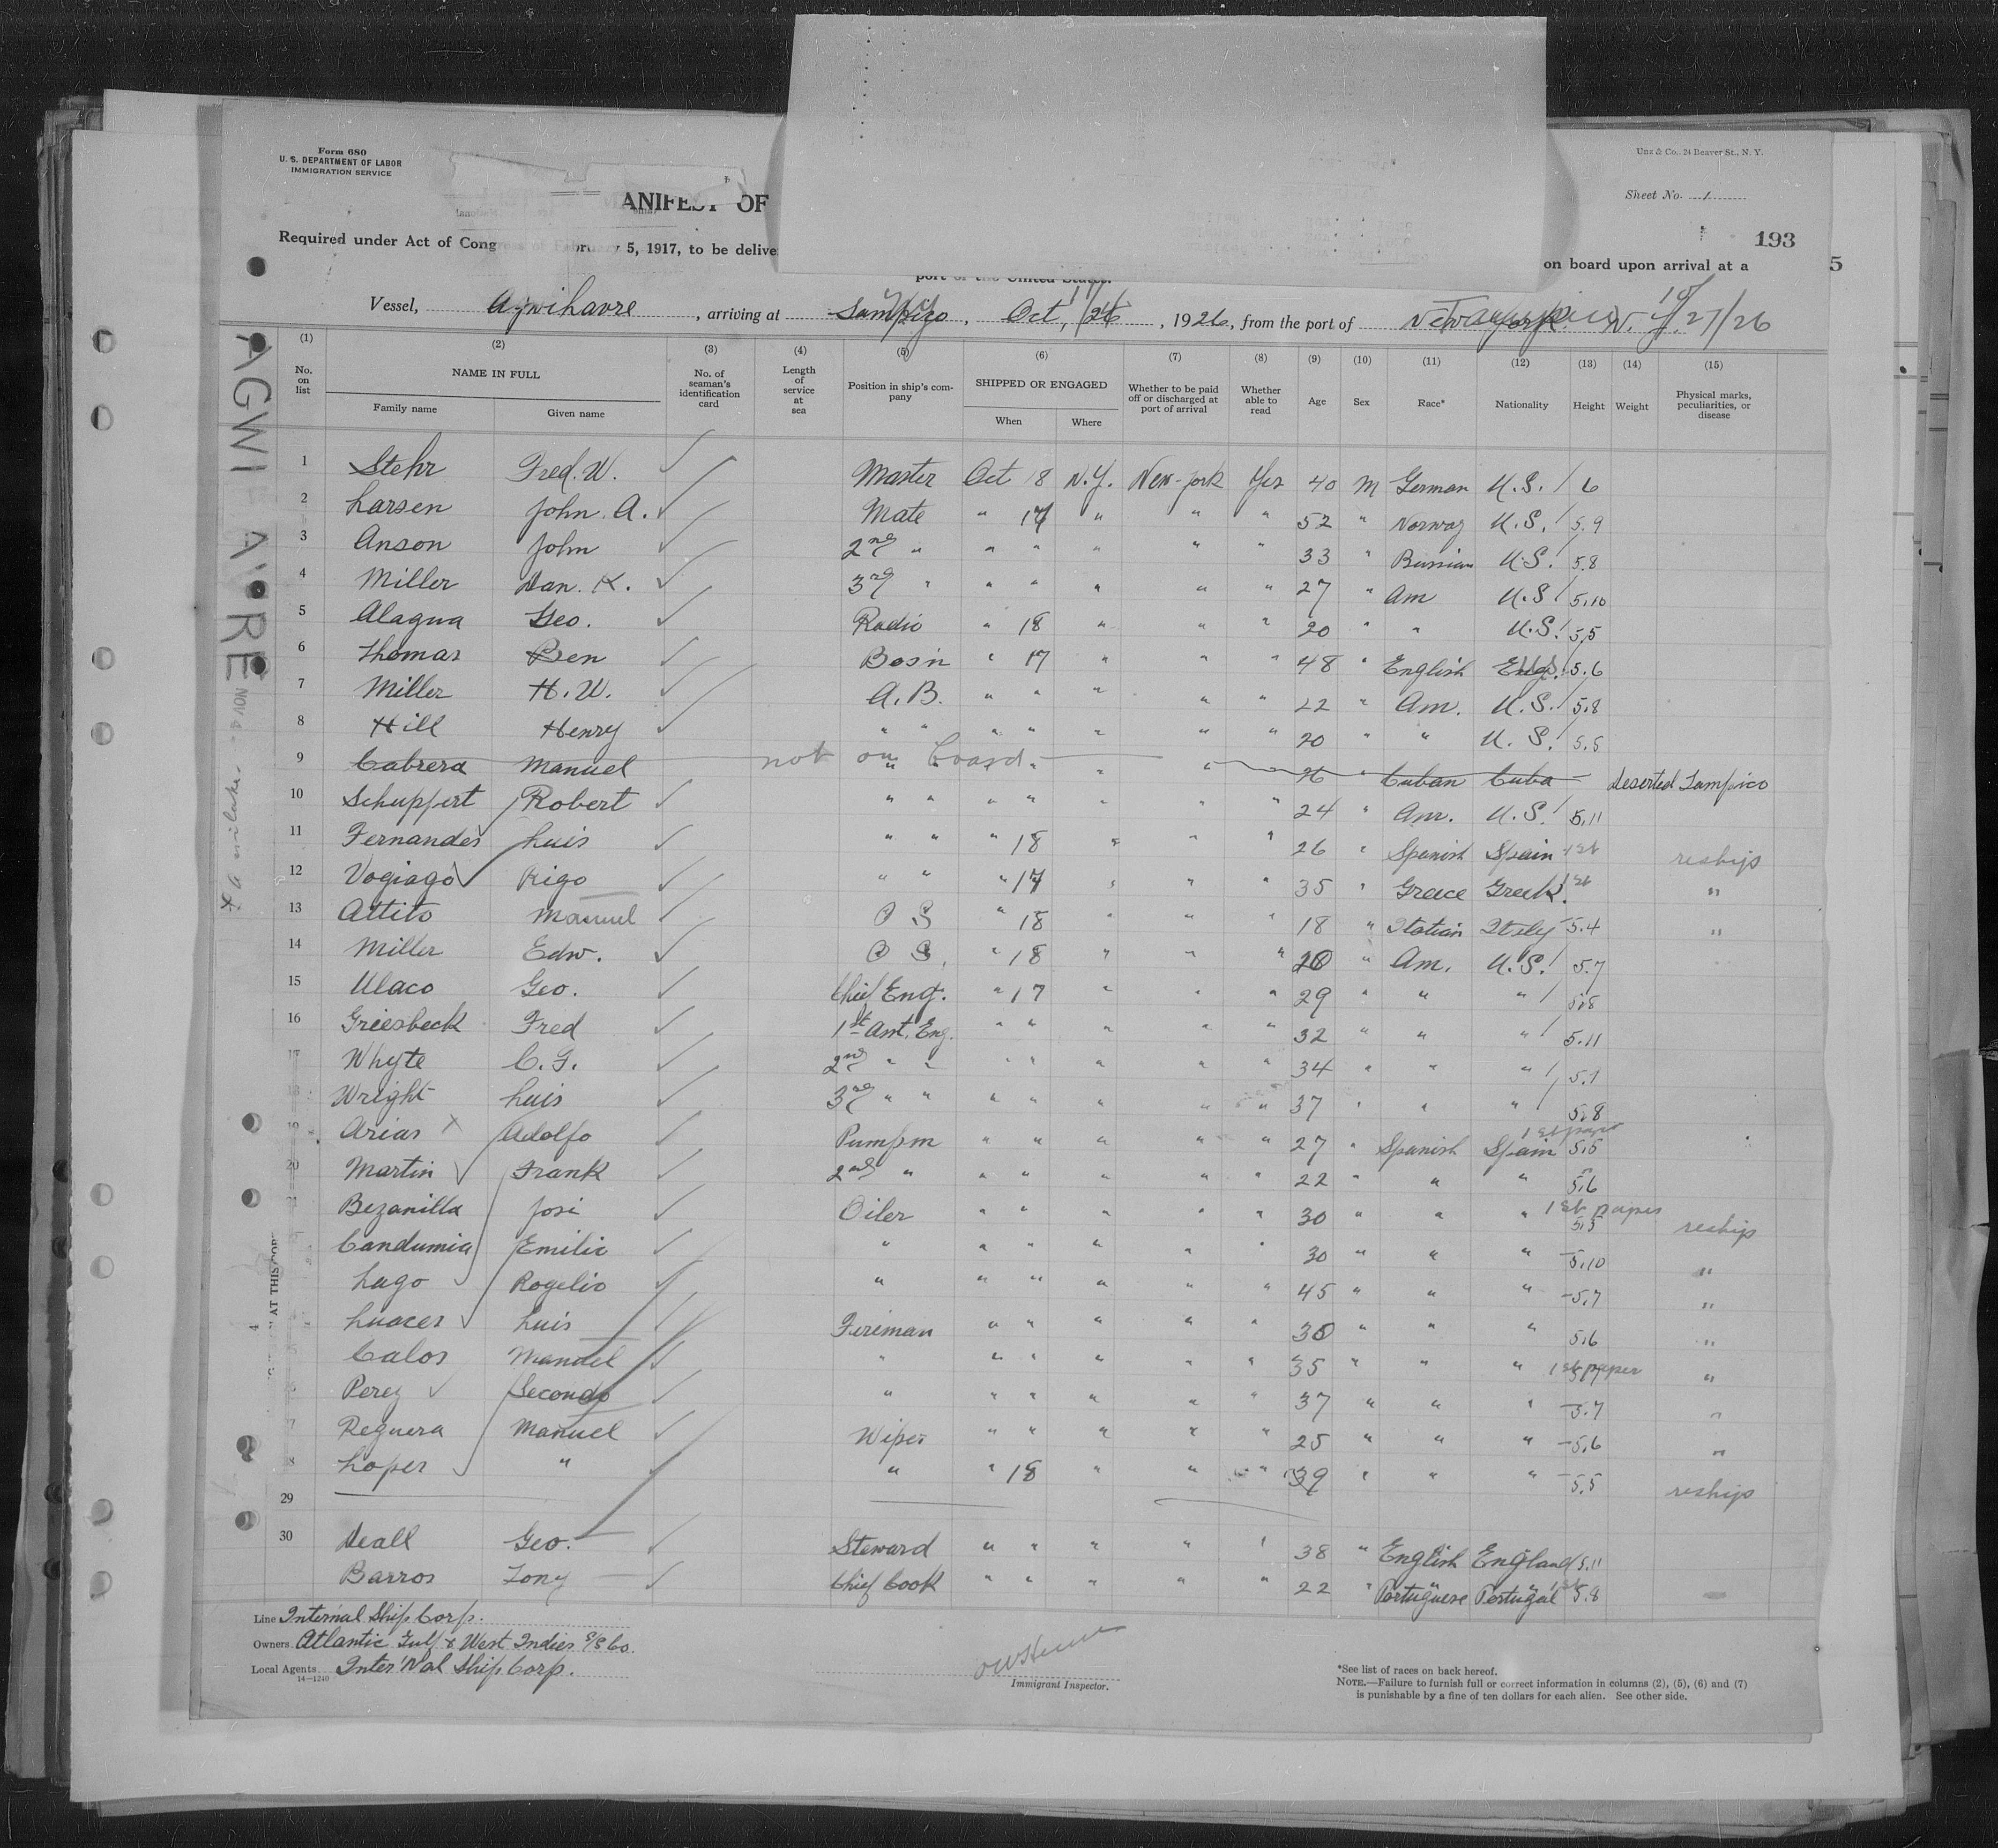 Form 680
U. S. DEPARTMENT OF LABOR
IMMIGRATION SERVICE
Unz & Co., 24 Beaver St., N. Y.
Sheet No. 1
ANIFEST OF
193
Required under Act of Congress of February 5, 1917, to be delive on board upon arrival at a
5
port of the United States.
Vessel, Agwihavre, arriving at Oct, 1926, from the port of 27/26
AGWI
NOV
AT THIS PORT
(1) (2) (3) (4) (5) (6) (7) (8) (9) (10) (11) (12) (13) (14) (15)
No. on list NAME IN FULL No. of seaman's identification card Length of service at sea Position in ship's company SHIPPED OR ENGAGED Whether to be paid off or discharged at port of arrival Whether able to read Age Sex Race* Nationality Height Weight Physical marks, peculiarities, or disease
Family name Given name When Where
1 Stehr Fred. W. Master Oct 18 N.Y. New-York Yes 40 M German U.S. 6
2 Larsen John. A. Mate " 17 " " " 52 " Norway U.S. 5.9
3 Anson John 2nd " " " " " " 33 " Russian U.S. 5.8
4 Miller Dan. K. 3rd " " " " " " 27 " Am U.S. 5.10
5 Alagna Geo. Radio " 18 " " " 20 " " U.S. 5.5
6 Thomas Ben Bos'n " 17 " " " 48 " English 5.6
7 Miller H. W. A.B. " " " " " 22 " Am. U.S. 5.8
8 Hill Henry " " " " " " " 20 " " U.S. 5.5
9 Cabrera Manuel not on board " " 26 Cuban Cuba Deserted Tampico
10 Schuppert Robert " " " " " " " 24 " Am. U.S. 5.11
11 Fernandes Luis " " " 18 " " " 26 " Spanish Spain 1st reships
12 Vogiago Rigo " " " 17 " " " 35 " Greece Greek. 1st "
13 Attito Manuel O S " 18 " " " 18 " Italian Italy 5.4 "
14 Miller Edw. O S. " 18 " " " 20 " Am. U.S. 5.7
15 Ulaco Geo. Chief Eng. " 17 " " " 29 " " " 5.8
16 Griesbeck Fred 1st Asst. Eng. " " " " " 32 " " " 5.11
17 Whyte C. G. 2nd " " " " " " " 34 " " " 5.7
18 Wright Luis 3rd " " " " " " " 37 " " " 5.8
19 Arias X Adolfo Pumpm " " " " " 27 " Spanish Spain 1st paper 5.5
20 Martin Frank 2nd " " " " " " 22 " " " 5.6
21 Bezanilla Josi Oiler " " " " " 30 " " " 1st paper 5.5 reship
Candumia Emilio " " " " " " 30 " " " 5.10 "
Lago Rogelio " " " " " " 45 " " " 5.7 "
Luaces Luis Fireman " " " " " 30 " " " 5.6 "
Calos Manuel " " " " " " 35 " " " 1st paper "
Perez Secondo " " " " " " 37 " " " 5.7 "
7 Reguera Manuel Wiper " " " " " 25 " " " 5.6 "
8 Loper " " " 18 " " " 39 " " " 5.5 reships
29
30 Deall Geo. Steward " " " " " 38 " English England 5.11
Barros Tony Chief Cook " " " " " 22 " Portuguese Portugal 5.8
Line Internal Ship Corp.
Owners Atlantic Gulf & West Indies S/S Co.
Local Agents Inter'Nal Ship Corp.
14—1240
Immigrant Inspector.
*See list of races on back hereof.
NOTE.—Failure to furnish full or correct information in columns (2), (5), (6) and (7)
is punishable by a fine of ten dollars for each alien. See other side.